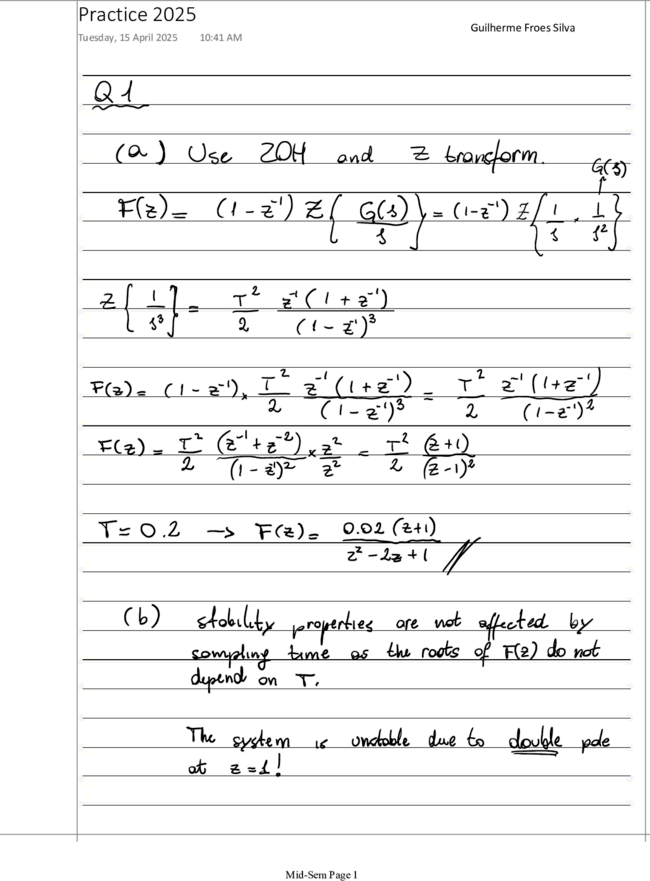 Practice 2025
Guilherme Froes Silva
Tuesday, 15 April 2025 10:41 AM
Q1
(a) Use ZOH and Z transform.
G(s)
↑
F(z) = (1 - z⁻¹) Z{ G(s)/s } = (1 - z⁻¹) Z{ 1/s · 1/s² }
Z{ 1/s³ } = T²/2 z⁻¹(1 + z⁻¹)/(1 - z⁻¹)³
F(z) = (1 - z⁻¹) × T²/2 z⁻¹(1 + z⁻¹)/(1 - z⁻¹)³ = T²/2 z⁻¹(1 + z⁻¹)/(1 - z⁻¹)²
F(z) = T²/2 (z⁻¹ + z⁻²)/(1 - z⁻¹)² × z²/z² = T²/2 (z+1)/(z-1)²
T = 0.2 → F(z) = 0.02 (z+1)/(z² - 2z + 1) //
(b) stability properties are not affected by
sampling time as the roots of F(z) do not
depend on T.
The system is unstable due to double pole
at z = 1!
Mid-Sem Page 1